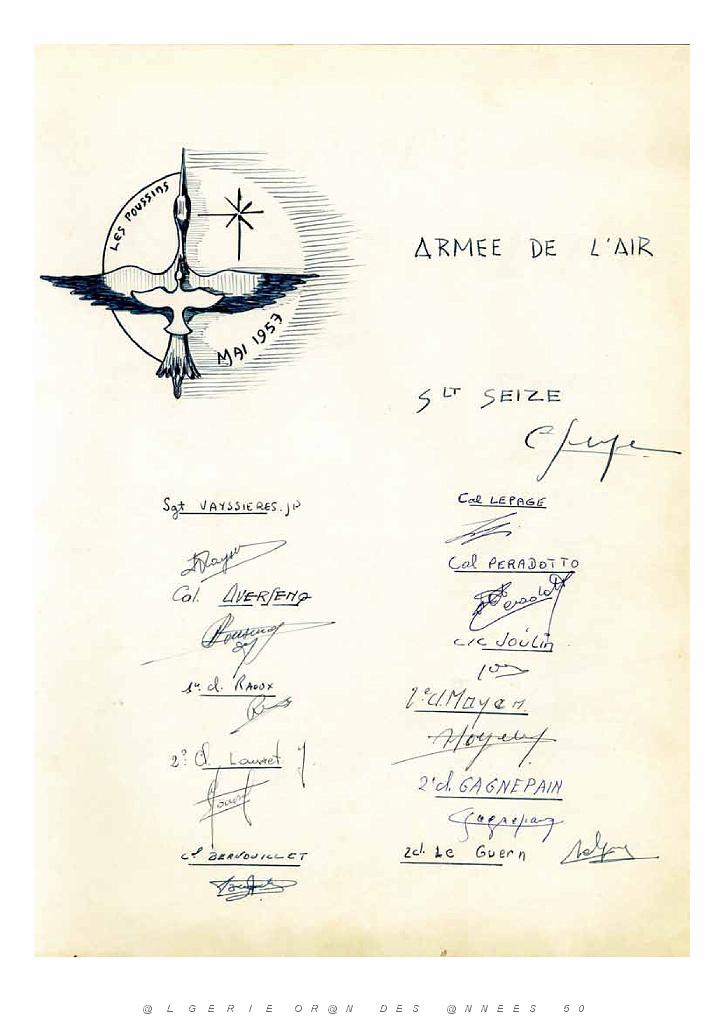 LES POUSSINS
MAI 1957
ARMEE DE L'AIR
SLT SEIZE
Sgt VAYSSIERES.JP
Cal. AVERSENQ
1ere cl. RAOUX
2° cl. Lauret J.
cl BERNOUILLET
Cal LEPAGE
Cal PERADOTTO
c/c JOULIN
2°cl. Moyen.
2°cl. GAGNEPAIN
2cl. Le Guern
@LGERIE OR@N DES @NNEES 50